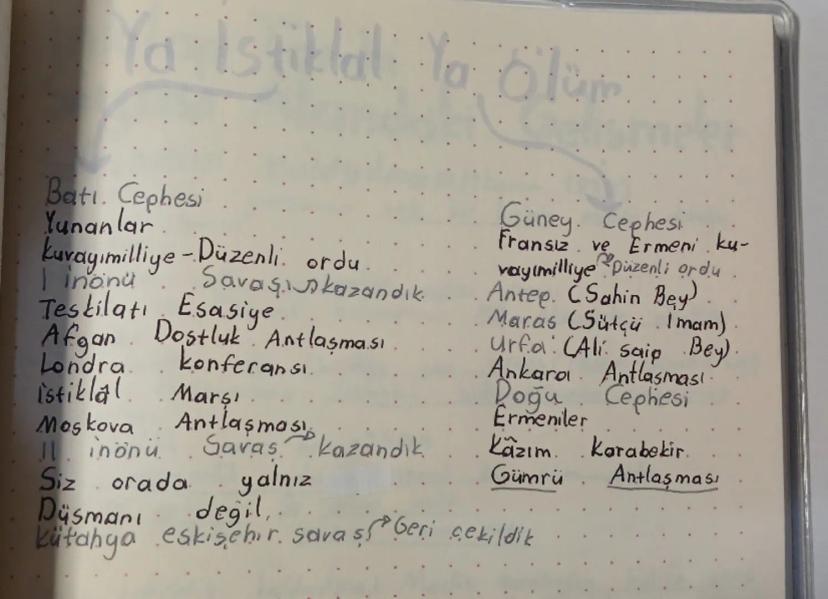 Ya İstiklal Ya Ölüm
Batı Cephesi
Yunanlar
kuvayımilliye - Düzenli ordu
I inönü Savaşı → kazandık
Teskilatı Esasiye
Afgan Dostluk Antlaşması
Londra konferansı
istiklâl Marşı
Moskova Antlaşması
II inönü Savaş → kazandık
Siz orada yalnız
Düşmanı değil,
kütahya eskişehir savaş → Geri çekildik
Güney Cephesi
Fransız ve Ermeni ku-
vayımilliye → Düzenli ordu
Antep (Sahin Bey)
Maras (Sütçü Imam)
Urfa (Ali saip Bey)
Ankara Antlaşması
Doğu Cephesi
Ermeniler
kâzım karabekir
Gümrü Antlaşması